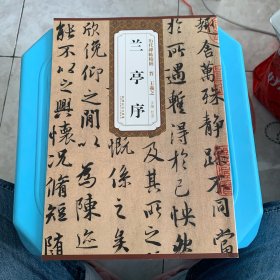 历代碑帖精粹 晋 王羲之
兰亭序
舍萬殊靜躁不同當
於所遇蹔得於己怏
及其所之
慨係之矣
欣俛仰之閒以為陳迹
能不以之興懷況脩短随